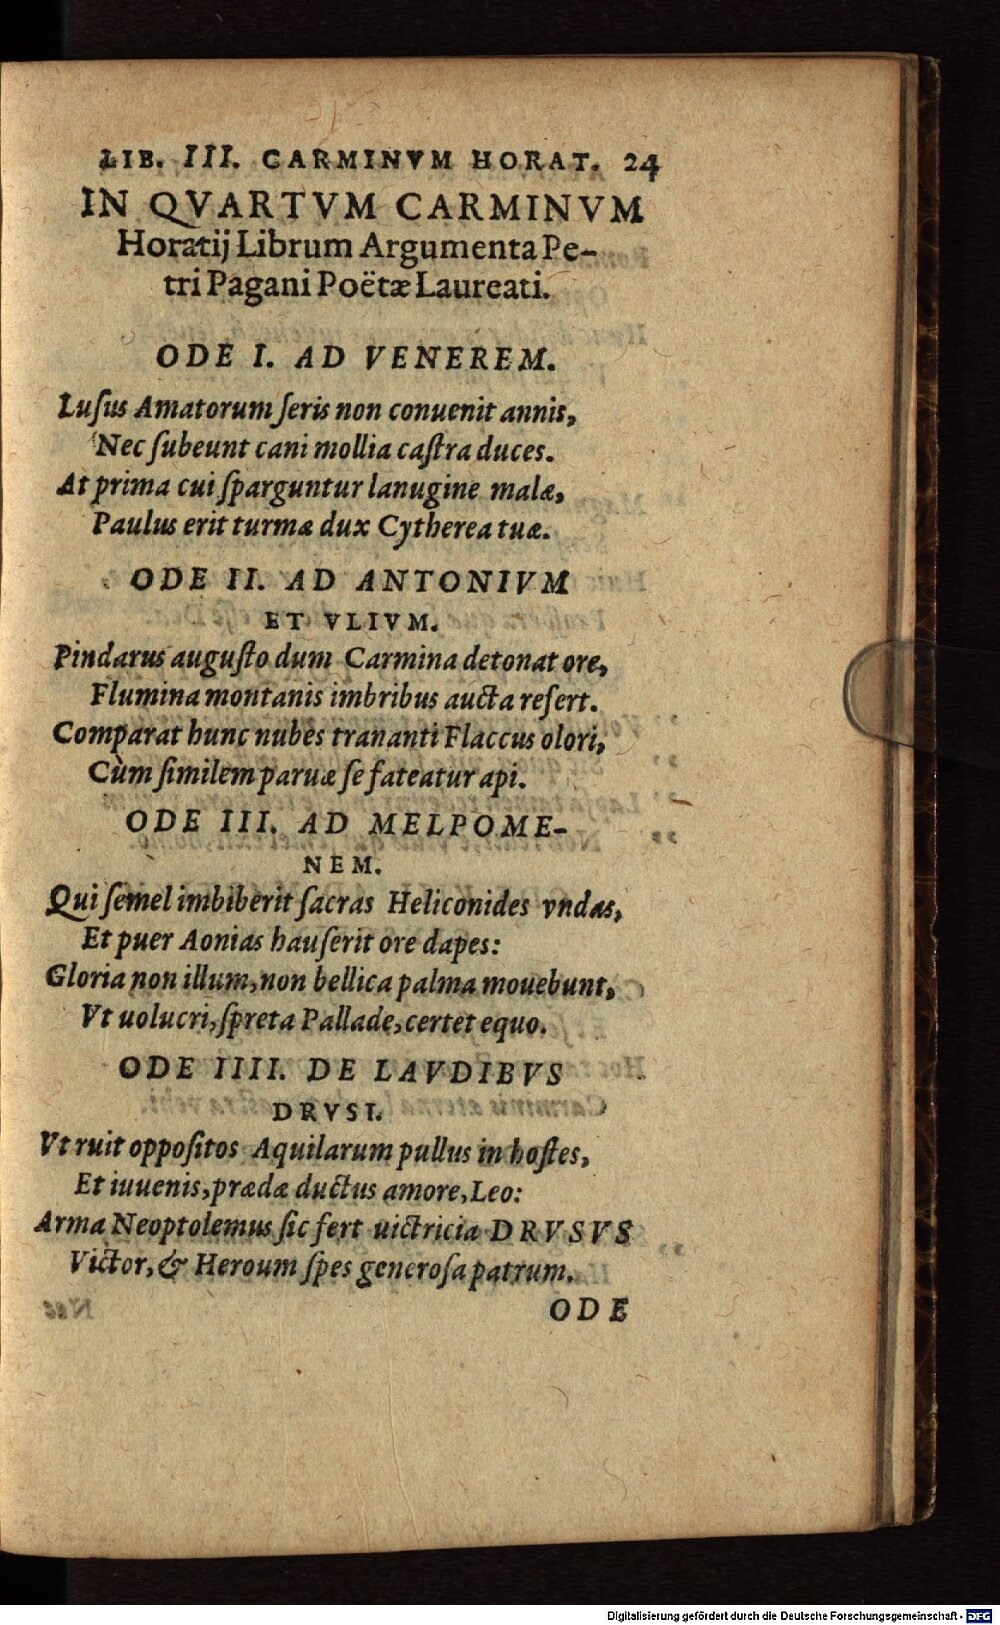 LIB. III. CARMINVM HORAT. 24
IN QVARTVM CARMINVM
Horatij Librum Argumenta Pe-
tri Pagani Poëtæ Laureati.
ODE I. AD VENEREM.
Luſus Amatorum ſeris non conuenit annis,
Nec ſubeunt cani mollia caſtra duces.
At prima cui ſparguntur lanugine malæ,
Paulus erit turmæ dux Cytherea tuæ.
ODE II. AD ANTONIVM
ET VLIVM.
Pindarus auguſto dum Carmina detonat ore,
Flumina montanis imbribus aucta refert.
Comparat hunc nubes trananti Flaccus olori,
Cùm ſimilem paruæ ſe fateatur api.
ODE III. AD MELPOME-
NEM.
Qui ſemel imbiberit ſacras Heliconides vndas,
Et puer Aonias hauſerit ore dapes:
Gloria non illum, non bellica palma mouebunt,
Vt uolucri, ſpreta Pallade, certet equo.
ODE IIII. DE LAVDIBVS
DRVSI.
Vt ruit oppoſitos Aquilarum pullus in hoſtes,
Et iuuenis, prædæ ductus amore, Leo:
Arma Neoptolemus ſic fert uictricia DRVSVS
Victor, & Heroum ſpes generoſa patrum.
ODE
Digitalisierung gefördert durch die Deutsche Forschungsgemeinschaft - DFG